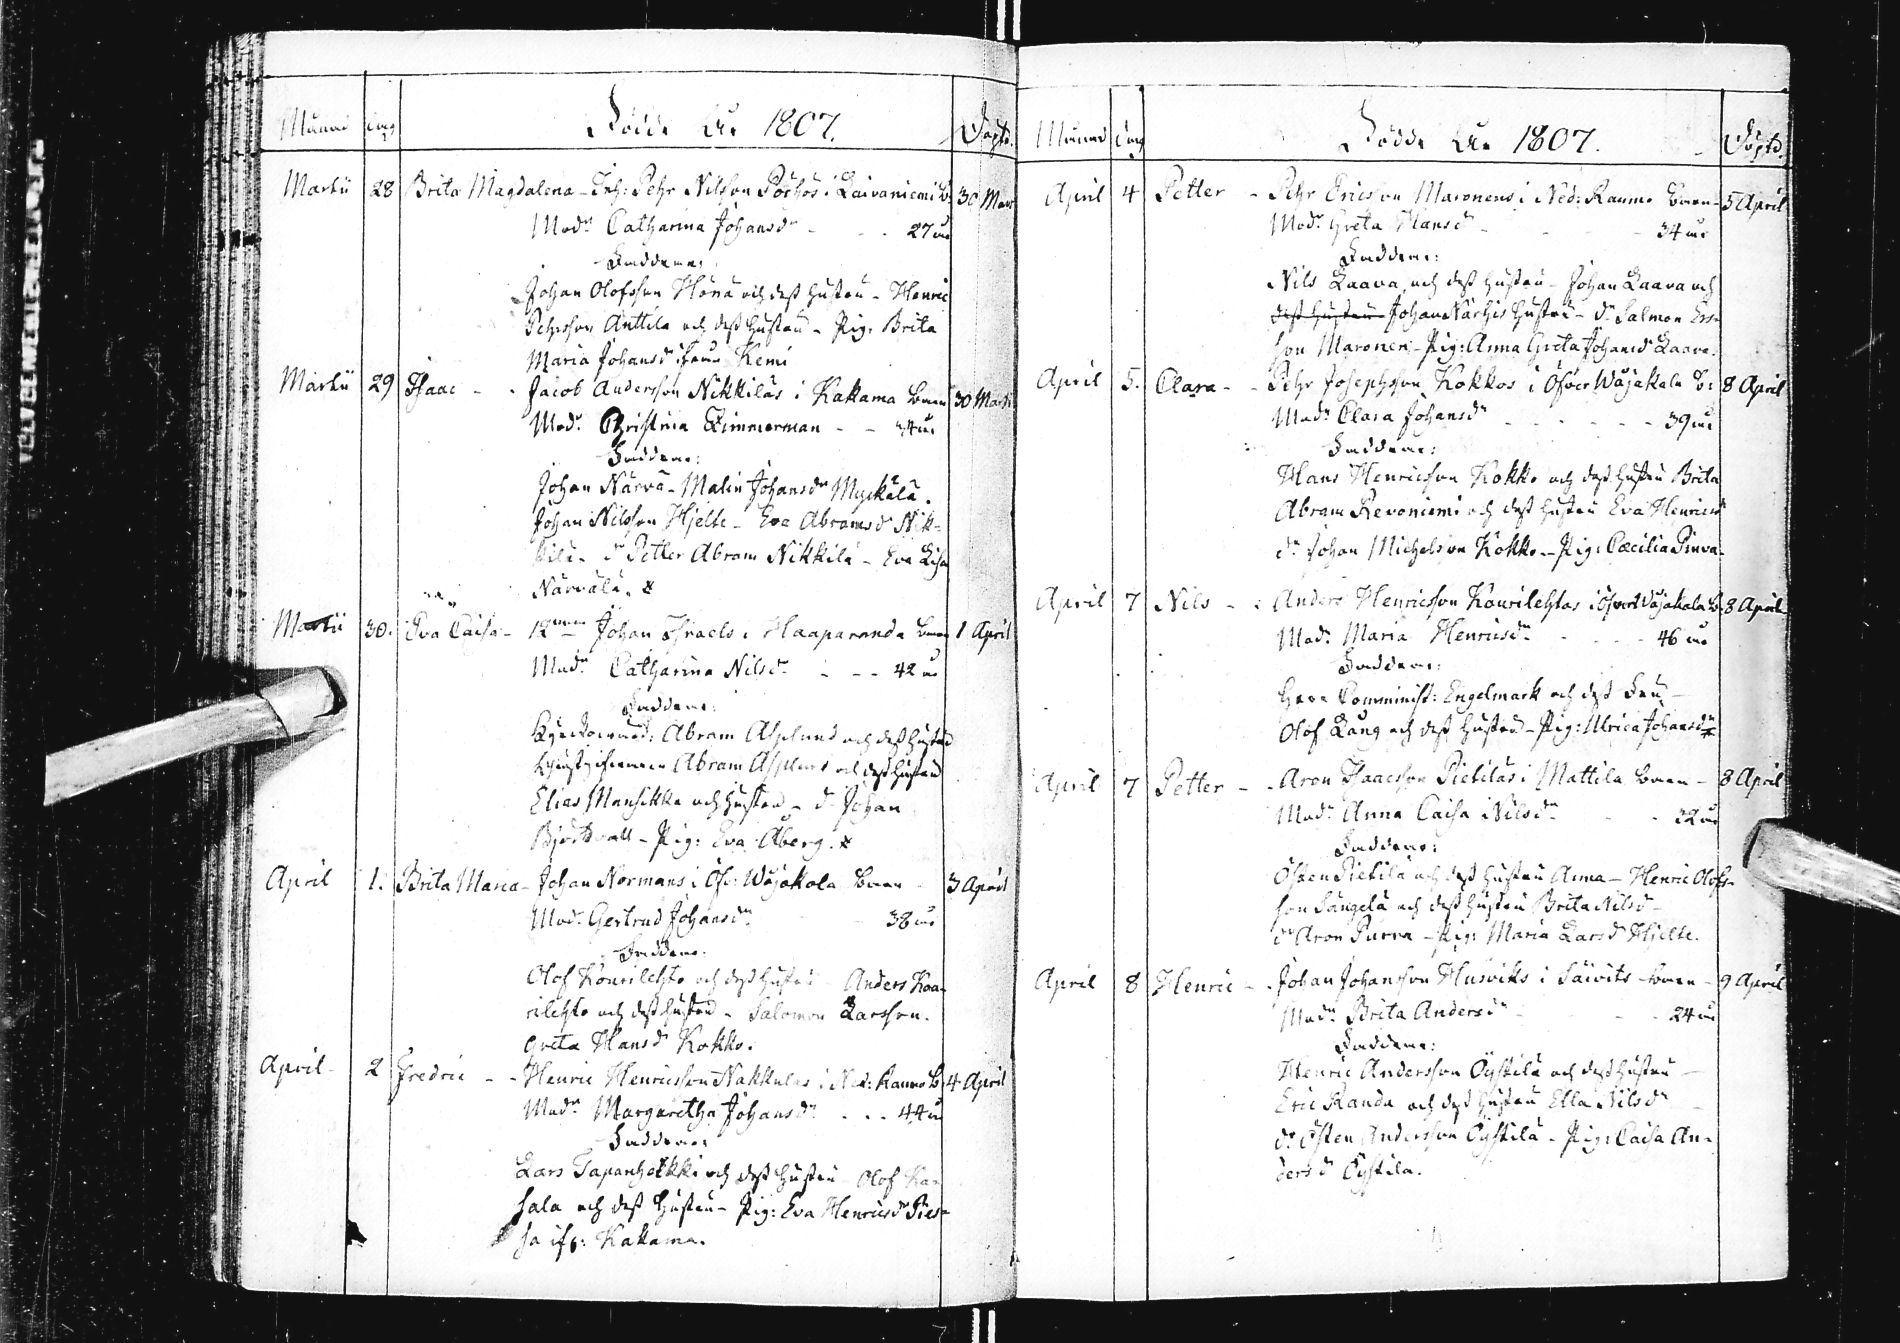 Månad dag Födde År 1807. Döpte.
Martii 28 Brita Magdalena - Inh: Pehr Nilsson Pörhös i Laivaniemi b. 30 Mart
Modr Catharina Johansdr - - 27 år
Faddrar:
Johan Olofsson Hörä och dess hustru - Henric
Pehrsson Anttila och dess hustru - Pig: Brita
Maria Johansdr ifrån Kemi
Martii 29 Isaac - - Jacob Andersson Nikkiläs i Kakama barn 30 Martii
Modr Christina Zimmerman - - 34 år
Faddrar:
Johan Närvä - Malin Johansdr Myckälä.
Johan Nilsson Hjelte - Eva Abramsdr Nik-
kilä - dr Petter Abram Nikkilä - Eva Lisa
Närvälä.
Martii 30. Eva Caisa - Johan Israels i Haaparanda barn 1 April
Modr Catharina Nilsdr - - - 42 år
Faddrar:
Abram Asplund och dess hustru
Abram Asplund och dess hustru
Elias Mansikka och hustru - dr Johan
Björkvall - Pig: Eva Åberg.
April 1. Brita Maria - Johan Normans i Öfv: Wojakala barn - 3 April
Modr Gertrud Johansdr - 38 år
Faddrar:
Olof Kourilehto och dess hustru - Anders Kou-
rilehto och dess hustru - Salomon Larsson.
Greta Hansdr Kokko.
April 2 Fredric - - Henric Henricsson Nakkulas i Ned: Raumo b. 4 April
Modr Margaretha Johansdr - - - 44 år
Faddrar:
Lars Tapanheikki och dess hustru - Olof Kar-
sala och dess hustru - Pig: Eva Henricsdr Pies-
sa ifr: Kakama.
Månad Dag Födde År 1807. Döpte.
April 4 Petter - Pehr Ericsson Maronens i Ned: Raumo barn - 5 April
Modr Greta Hansdr - - - 34 år
Faddrar:
Nils Laava och dess hustru - Johan Laava och
dess hustru Johan Närhis hustru - dr Salmon Ers-
son Maronen - Pig: Anna Greta Johansdr Laava.
April 5. Clara - - Pehr Josephsson Kokkos i Öfver Wojakala b: 8 April
Modr Clara Johansdr - - - - - 39 år
Faddrar:
Hans Henricsson Kokko och dess hustru Brita
Abram Revoniemi och dess hustru Eva Henricsdr
dr Johan Michelsson Kokko - Pig: Cæcilia Pinva.
April 7 Nils - - Anders Henricsson Kourilehtos i Öfver Wojakala b. 8 April
Modr Maria Henricsdr - - - 46 år
Faddrar:
Herr Comminist: Engelmark och dess Fru -
Olof Lång och dess hustru - Pig: Ulrica Johansdr
April 7 Petter - - Aron Isaacsson Pietiläs i Mattila barn - 8 April
Modr Anna Caisa Nilsdr - - 32 år
Faddrar:
Östen Pietilä och dess hustru Anna - Henric Olofs-
son Sängelä och dess hustru Brita Nilsdr -
dr Aron Purra - Pig: Maria Larsdr Hjelte.
April 8 Henric - - Johan Johansson Husviks i Säivits barn - 9 April
Modr Brita Andersdr - - - 24 år
Faddrar:
Henric Andersson Öystilä och dess hustru -
Eric Randa och dess hustru Ella Nilsdr -
dr Östen Andersson Öystilä - Pig: Caisa An-
dersdr Öystilä.